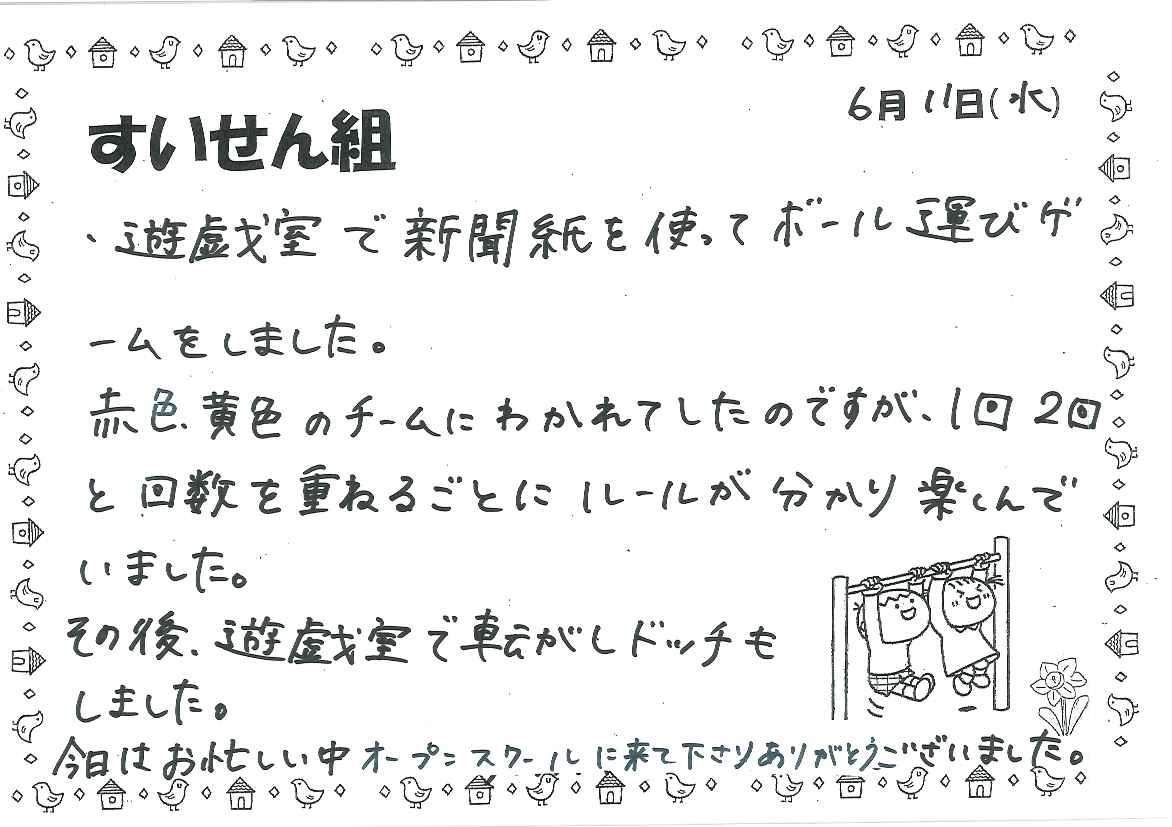 6月11日(水)
すいせん組
、遊戯室で新聞紙を使ってボール運びゲ
ームをしました。
赤色、黄色のチームにわかれてしたのですが、1回2回
と回数を重ねるごとにルールが分かり楽しんで
いました。
その後、遊戯室で転がしドッチも
しました。
今日はお忙しい中オープンスクールに来て下さりありがとうございました。